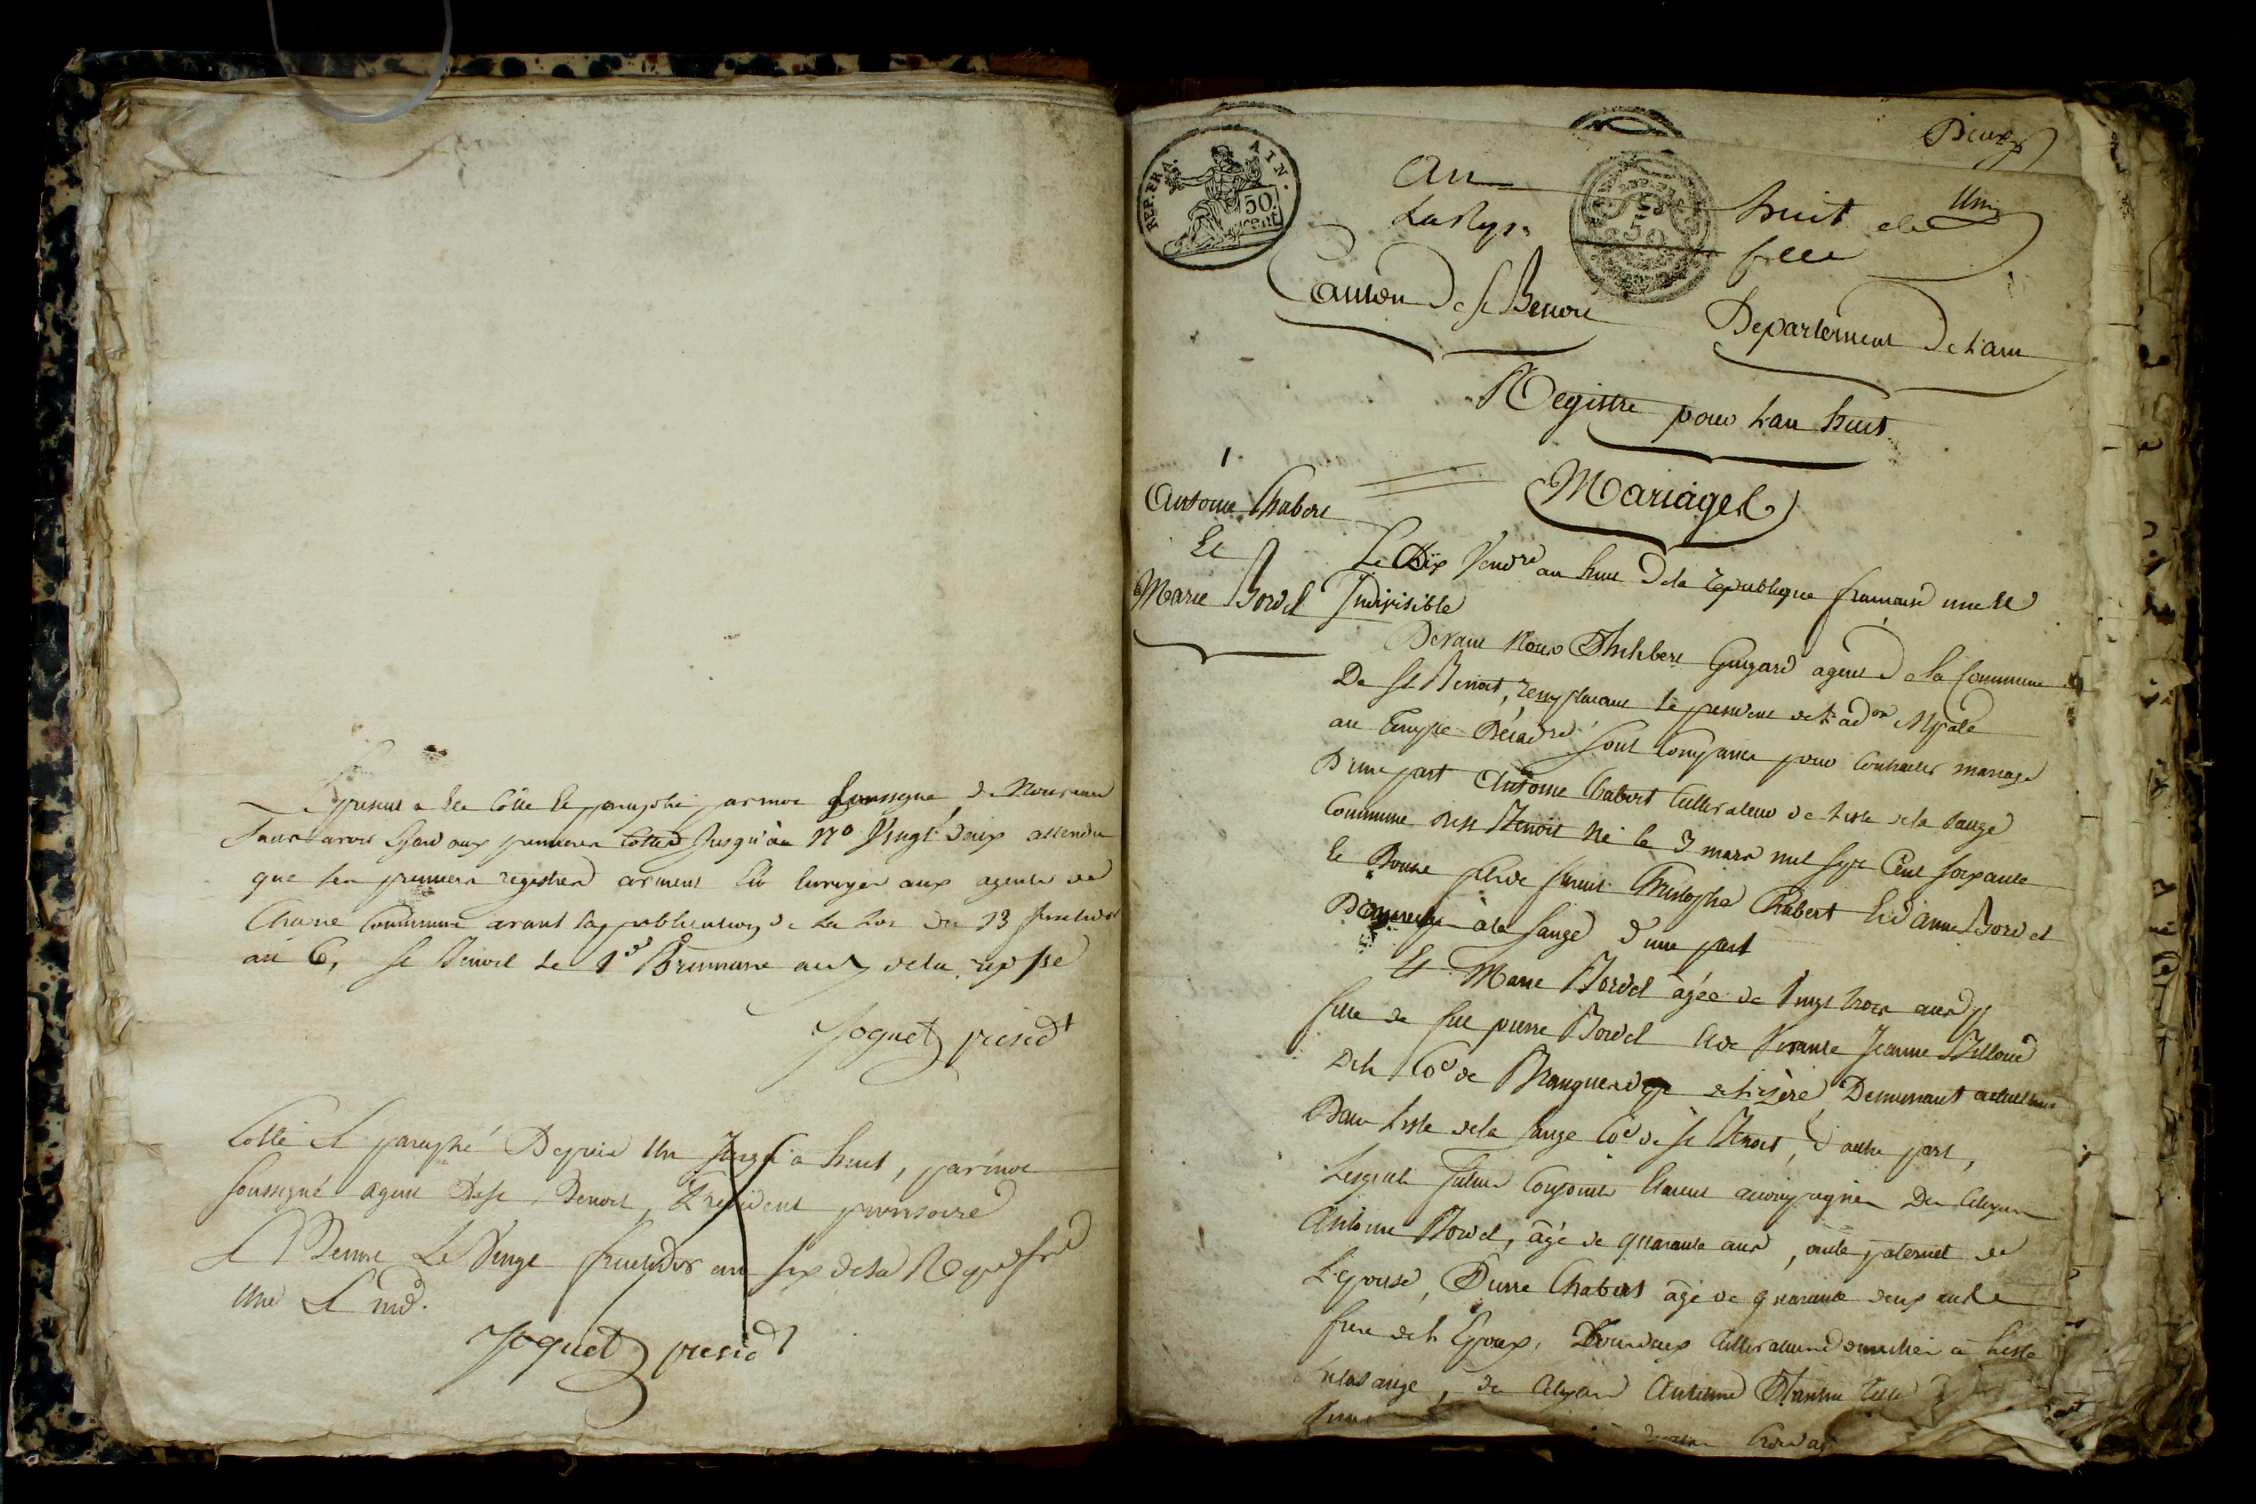 Le présent a été côté et paraphé par moi soussigné de nouveau
sans avoir égard aux premiers cotés jusqu'au N° Vingt deux attendu
que les premiers registres avoient été envoyés aux agents de
Chaque Commune avant la publication de la Loi du 13 fructidor
an 6, St Benoit le 1er Brumaire an 7 de la rep
Joguet presidt
Cotté et paraphé Depuis Un jusqu'a huit, par moi
soussigné agent de St Benoit, President provisoire
St Benoit Le Vingt fructidor an six de la
Une et ind.
Joguet presidt
Deux
REP. FRA. AIN.
50 cent
50
An huit de Une
La Rep.
Canton De St Benoit Departement De L'ain
Registre pour L'an huit
Mariages
1
Antoine Chabert
Et
Marie Bordel
Le Dix Vendre an huit De la republique francaise une et
Indivisible
Devant Nous Guigard agent De la Commune
De St Benoit, remplacant le president de L'adon Mpale
au Temple Décadre sont Comparus pour Contracter mariage
D'une part Antoine Chabert Cultivateur de L'isle de la Sauge
Commune de St Benoit né le 3 mars mil sept Cent soixante
et Douze fils de Christophe Chabert et d'anne Bordel
à la Sauge D'une part
Et Marie Bordel agée de Vingt trois ans
fille de feu pierre Bordel et de Vivante Jeanne
De la Coe de Brangues de L'isère, Demeurant actuellement
Dans L'isle de la Sauge Coe de St Benoit, D'autre part,
Lesquels futurs Conjoints Etaient accompagnés Des Citoyens
Antoine Bordel, âgé de quarante ans, oncle paternel de
L'epouse, Pierre Chabert âgé de quarante deux ans
frere de L'Epoux, Tous deux Cultivateurs domiciliés à L'isle
de la Sauge, des Citoyens